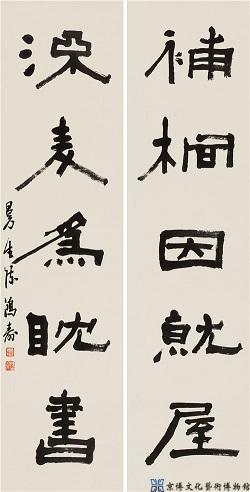 補桐因就屋
漂麥為耽書
曼生陳鴻壽
京博文化藝術博物館